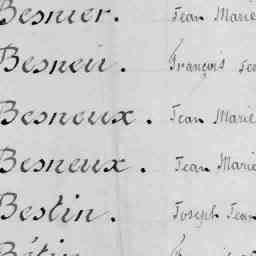 Besnier. Jean Marie
Besneii. François
Besneux. Jean Marie
Besneux. Jean Marie
Bestin. Joseph Jean